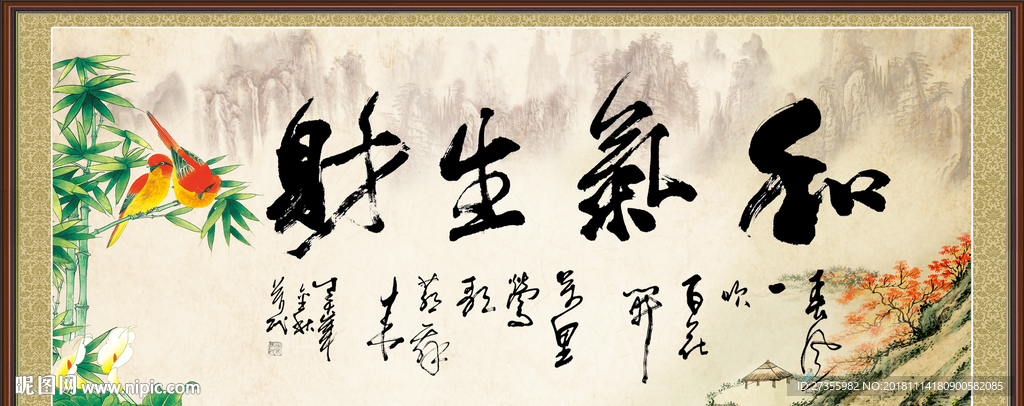 和氣生財
春風
一
吹
百花
開
萬里
鶯
歌
燕舞
来
昵图网 www.nipic.com
ID:27355982 NO:20181114180900582085